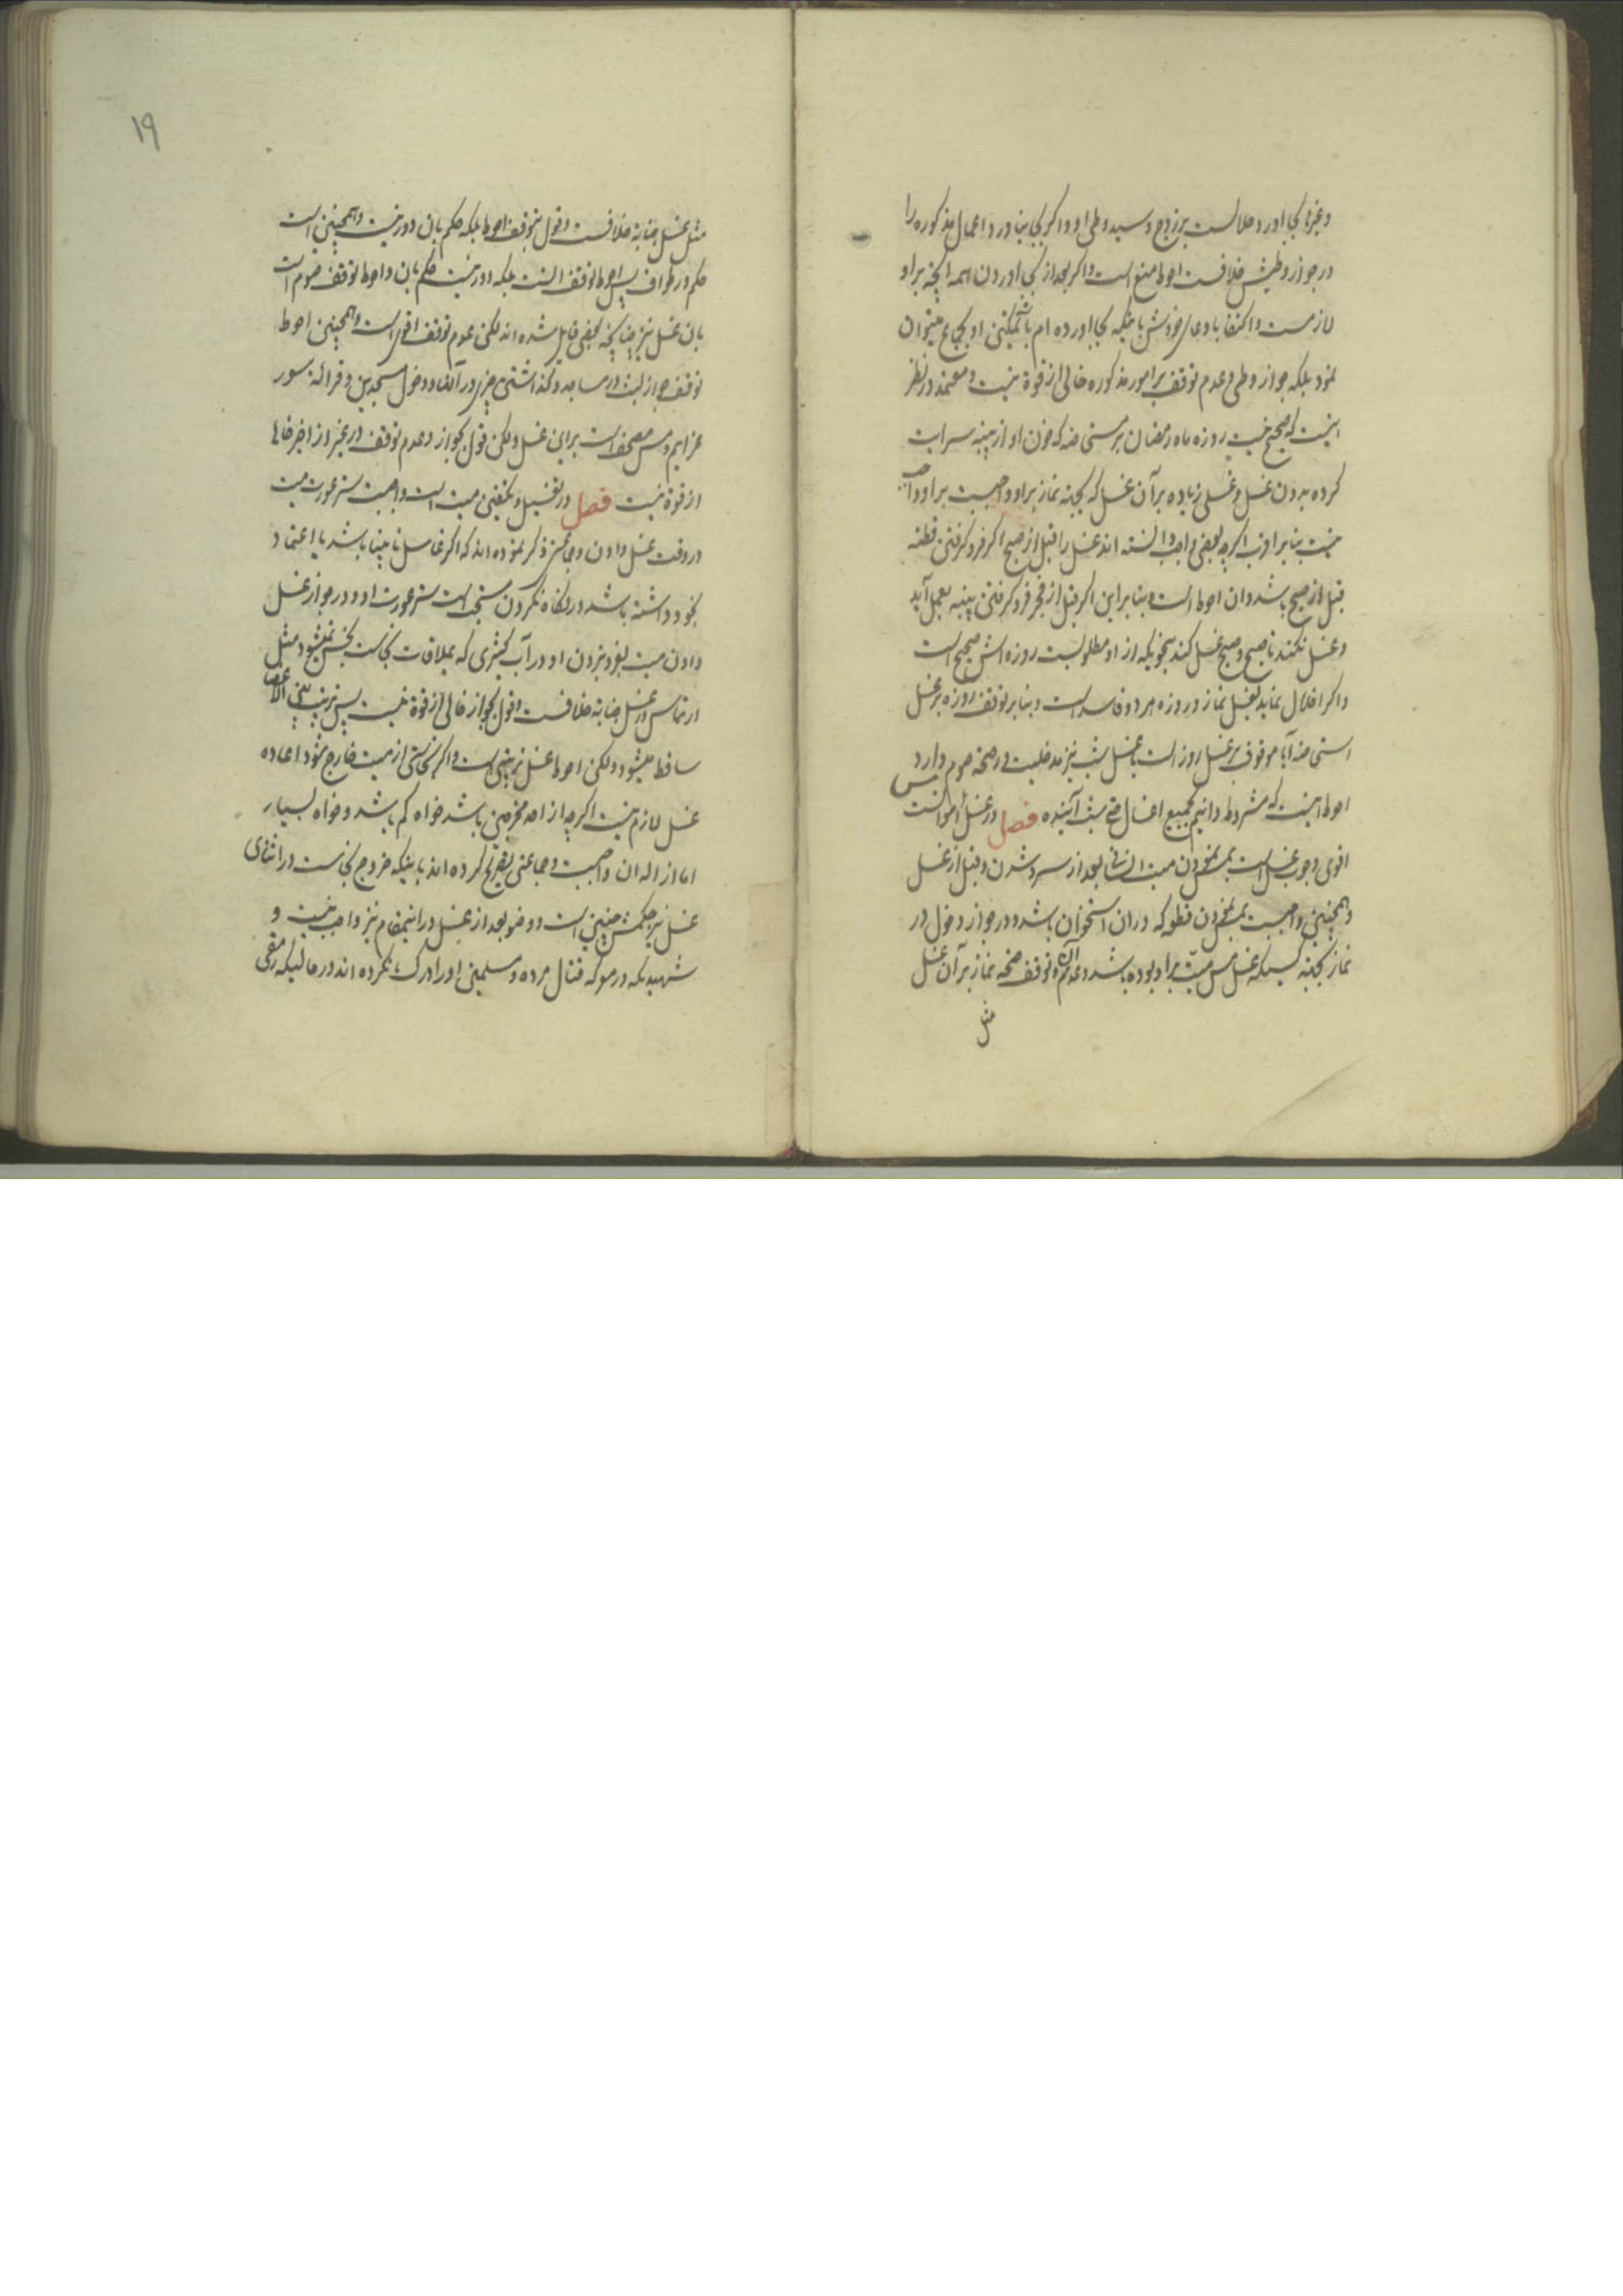 وغیرها بجا اورد حلالست بر زوج و سید وطی او و اکر بجا نیاورد اعمال مذکوره را
در جواز وطیش خلافست احوط منع است و اکر بعد از بجا اوردن همه انچه بر او
لازمست و اکتفا بادعای خودش باینکه بجا اورده ام با تمکین او بجماع میتوان
نمود بلکه جواز وطی و عدم توقف بر امور مذکوره خالی از قوة نیست و معتمد در نظر
اینست که صحیح نیست روزه ماه رمضان بر مستحاضه که خون او از پنبه سرایت
کرده بدون غسل و غسلی زیاده بر آن غسل که بجهة نماز بر او واجبست بر او واجب
نیست بنا بر اقرب اکرچه بعضی واجب دانسته اند غسل را قبل از صبح اکر فرو کرفتن قطنه
قبل از صبح باشد و ان احوط است و بنا بر این اکر قبل از فجر فرو کرفتن پنبه بعمل آید
و غسل نکند تا صبح و صبح غسل کند بنحویکه از او مطلوبست روزه اش صحیح است
و اکر اخلال نماید بغسل نماز و روزه هر دو فاسد است و بنا بر توقف روزه بر غسل
استحاضه آیا موقوف بر غسل روز است یا غسل شب نیز مدخلیت در صحة صوم دارد
احوط اینست که مشروط دانیم بجمیع اغسال حتی شب آینده فصل در غسل مس امواتست
اقوی وجوب غسل است بمس نمودن میت انسانی بعد از سرد شدن و قبل از غسل
و همچنین واجبست بمس نمودن قطعه که در ان استخوان باشد و در جواز دخول در
نماز بجهة کسیکه غسل مس میت بر او بوده باشد و عدم آن و توقف صحة نماز بر آن غسل
مثل
۱۹
مثل غسل جنابة خلافست و قول بتوقف احوط بلکه حکم بان دور نیست و همچنین است
حکم در طواف پس احوط توقف انست بلکه دور نیست حکم بان و احوط توقف صوم است
بان غسل نیز چنانچه بعضی قایل شده اند لکن عدم توقف اقوی است و همچنین احوط
توقف جواز لبث در مساجد و کذاشتن چیزی در آنها و دخول مسجدین و قرائة سور
عزایم و مس مصحف است بر این غسل و لکن قول بجواز و عدم توقف در غیر از اخر خالی
از قوة نیست فصل در تغسیل و تکفین میت است واجبست ستر عورت میت
در وقت غسل دادن و جمعی ذکر نموده اند که اکر غاسل نابینا باشد یا اعتماد
بخود داشته باشد در نکاه نکردن مستحب است ستر عورت او و در جواز غسل
دادن میت بفرو بردن او در آب کثیری که بملاقات نجاست نجس نمیشود مثل
ارتماس در غسل جنابة خلافست و قول بجواز خالی از قوة نیست پس ترتیب بین الاعضا
ساقط میشود و لکن احوط غسل ترتیبی است و اکر نجاستی از میت خارج شود اعاده
غسل لازم نیست اکرچه از احد مخرجین باشد خواه کم باشد و خواه بسیار
اما ازاله ان واجبست و جماعتی تصریح کرده اند باینکه خروج نجاست در اثنای
غسل نیز حکمش چنین است و وضو بعد از غسل در اینمقام نیز واجب نیست و
شهیدیکه در معرکه قتال مرده و مسلمین او را درک نکرده اند در حالیکه رمقی